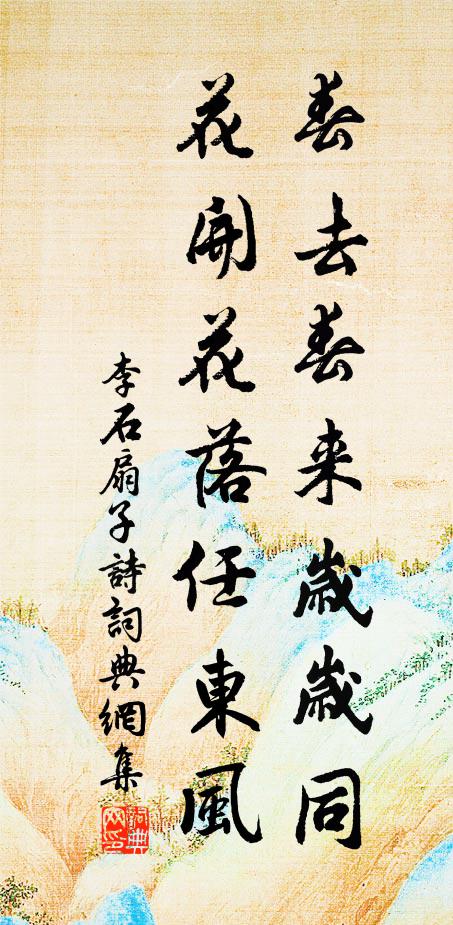 春去春来歲歲同
花開花落任東風
李石扇子詩詞典網集
詞典網印